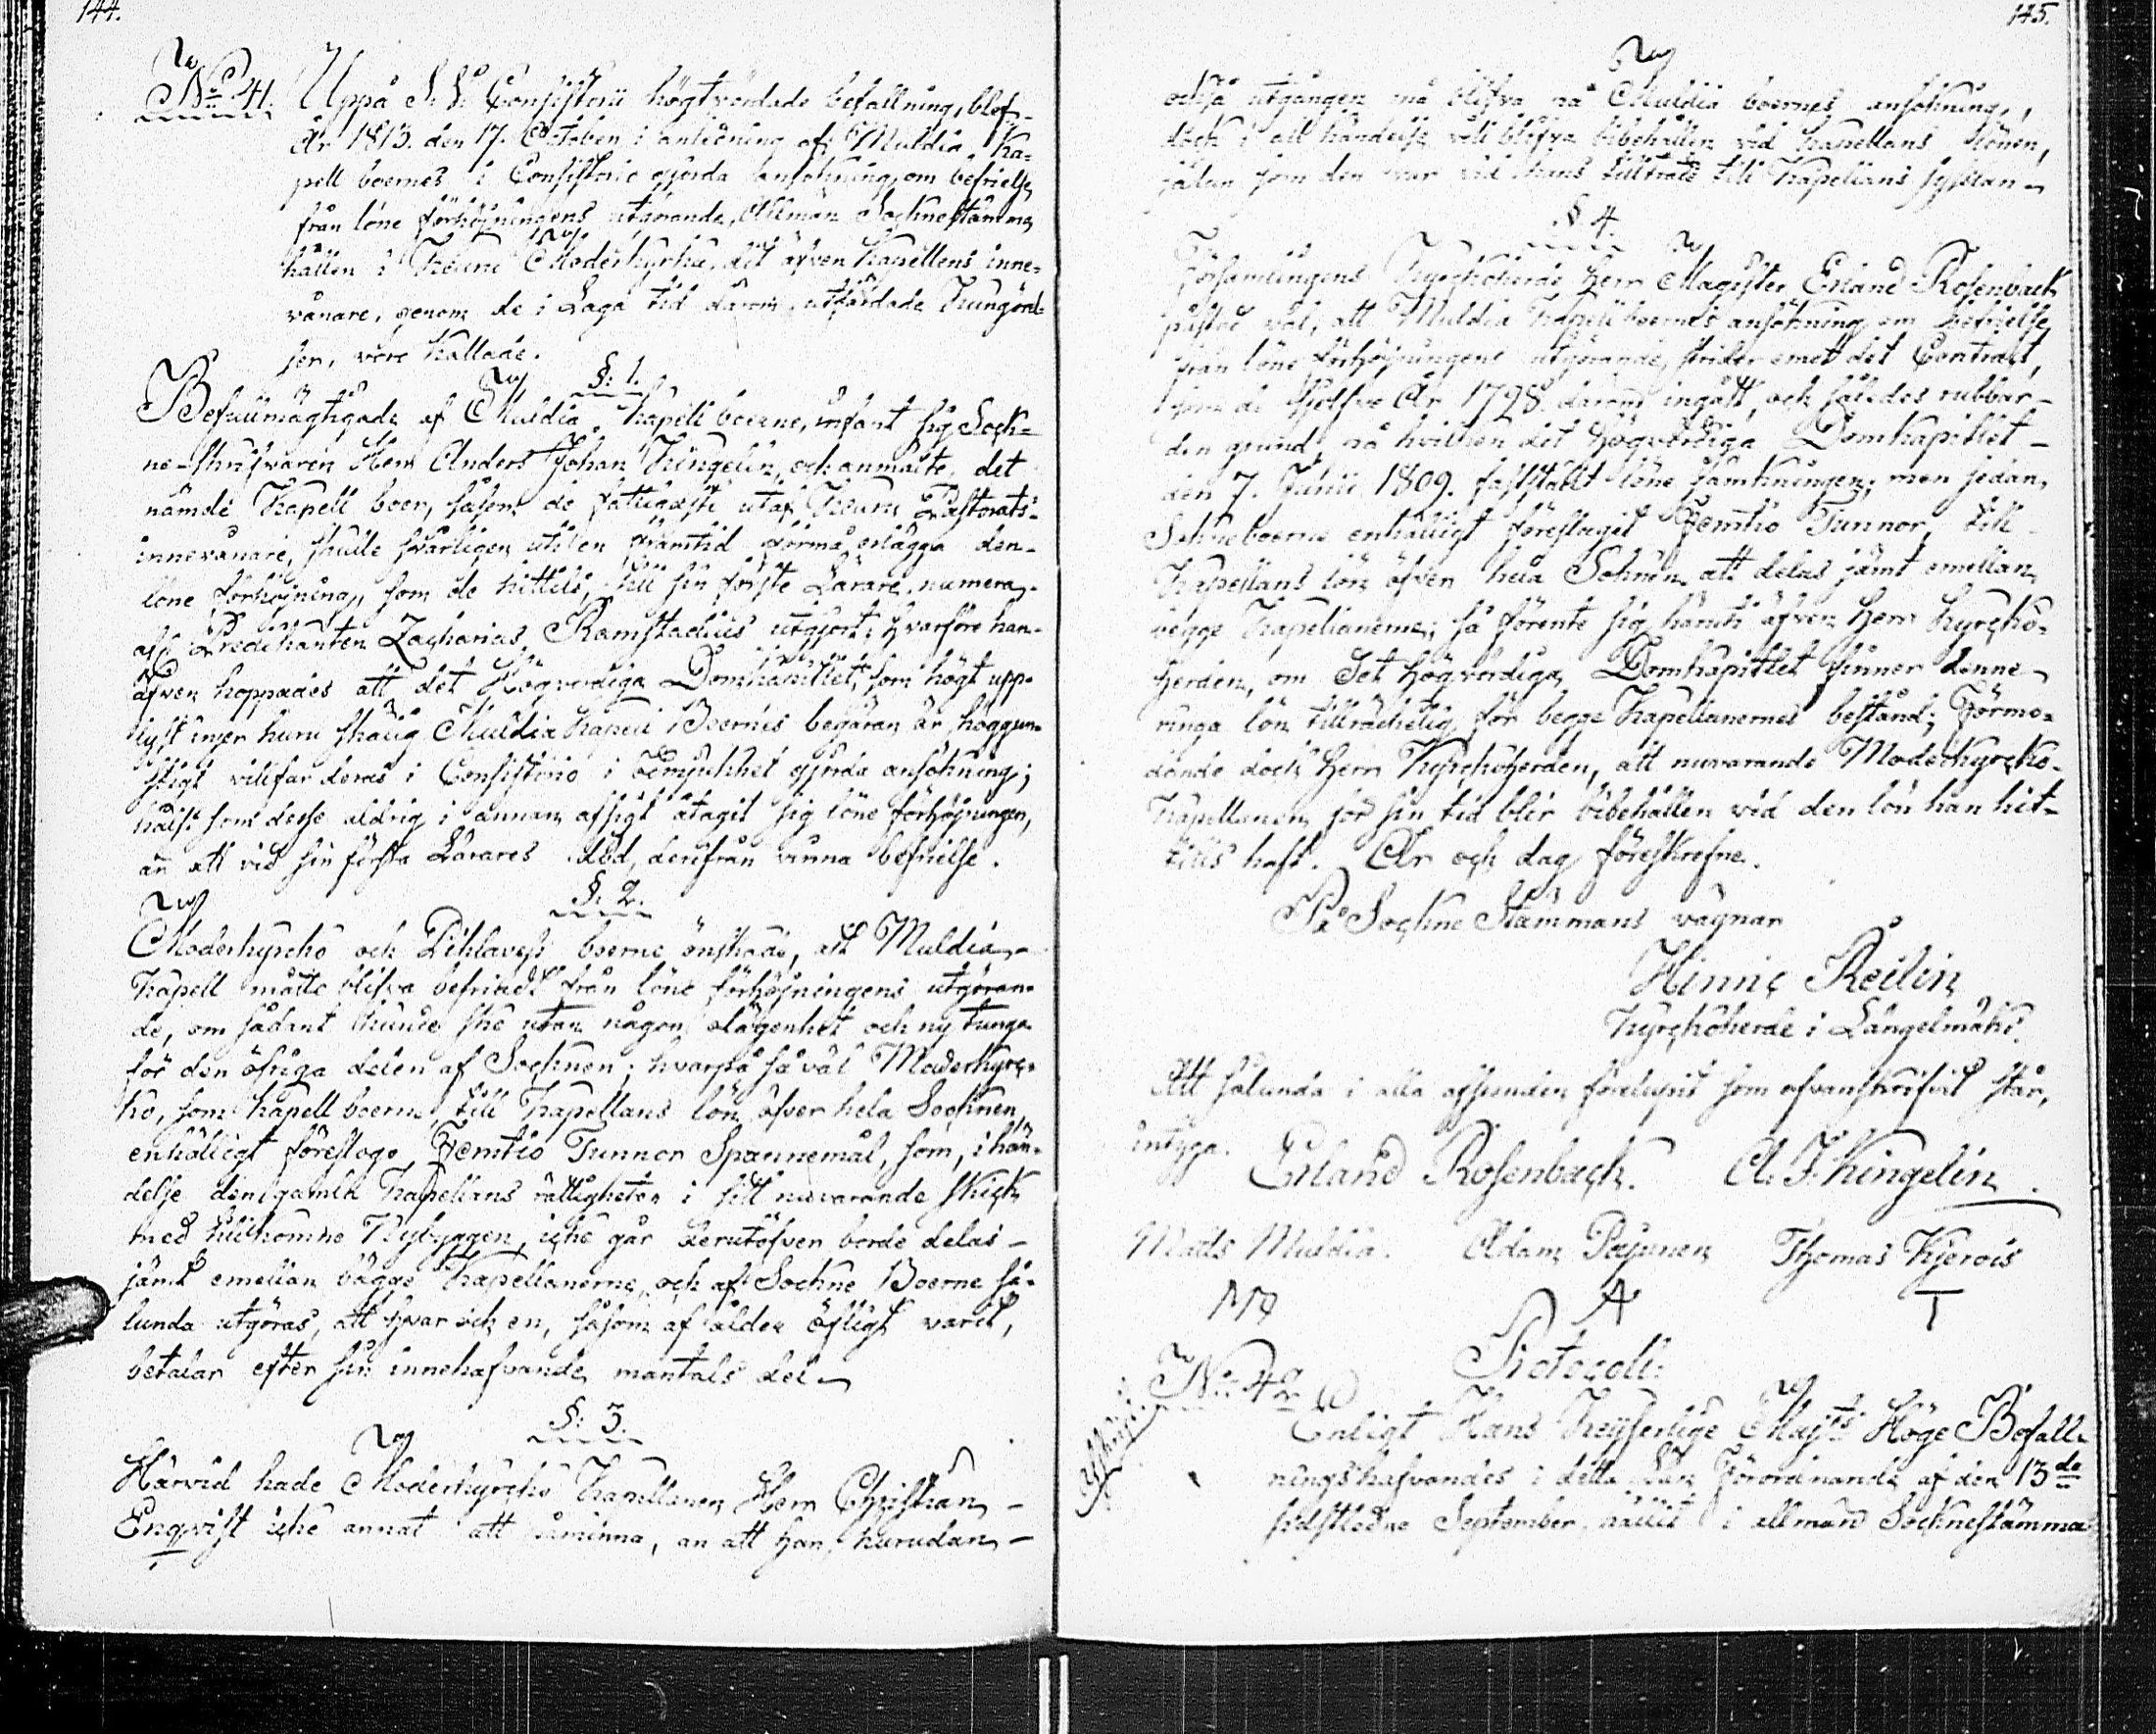 144.
No: 41. Uppå S. S. Consistorii högtvördade befallning, blef
År 1813. den 17. October i anledning af Muldia Ka-
pell boernes i Consistorio gjorda ansökning, om befrielse
från löne förhöjningens utgörande, Allmän Sochnestämma
hållen i Keuru Moderkyrka, dit äfven Kapellens inne-
vånare, genom de i Laga tid därom utfärdade Kungörel-
ser, voro kallade.
§: 1.
Befullmägtigade af Muldia Kapell boerne, infant sig Soch-
ne-skrifvaren Herr Anders Johan Kingelin, och anmälte, det
nämde Kapell boer, såsom de fattigaste utaf Keuru Pastorats
innevånare, skulle svårligen uti en framtid förmå erlägga den
löne förhöjning, som de hittils, till sin förste Lärare, numera
afl. Predikanten Zacharias Ramstadius utgjort; hvarföre han
äfven hoppades att det Högvördiga Domkapitlet, som högt upp-
lyst inser huru skälig Muldia Kapell Boernes begäran är höggun-
stigt villfar deras i Consistorio i ödmjukhet gjorda ansökning;
hälst som desse aldrig i annan afsigt åtagit sig löne förhöjningen,
än att vid sin första Lärares död, derifrån vinna befrielse.
§: 2.
Moderkyrcko och Pihlavesi boerne önskade, att Muldia
Kapell måtte blifva befriadt från löne förhöjningens utgöran-
de, om sådant kunde ske utan någon olägenhet och ny tunga
för den öfriga delen af Sochnen; hvarpå så väl Moderkyrc-
ko, som Kapell boerne, till Kapellans lön öfver hela Sochnen,
enhälligt föreslogo Femtio Tunnor Spannemål, som, i hän-
delse den gamla Kapellans rättigheten i sitt nuvarande skick
med tillkomne Nybyggen, icke går derutöfver borde delas
jämt emellan bägge Kapellanerne, och af Sochne Boerne så-
lunda utgöras, att hvar och en, såsom af ålder öfligt varit,
betalar efter sin innehafvande mantals del.
§: 3.
Härvid hade Moderkyrcko Kapellanen Herr Christian
Enqvist icke annat att påminna, än att han, hurudan
145.
också utgången må blifva på Muldia boernes ansökning,
dock i all händelse vill blifva bibehållen vid Kapellans lönen,
sådan som den var vid hans tillträde till Kapellans sysslan
§ 4.
Församlingens Kyrckoherde Herr Magister Erland Rosenback
påstod väl, att Muldia Kapell boernes ansökning om befrielse
från löne förhöjningens utgörande, strider emot det Contract,
som de sjelfve År 1798. därom ingått, och således rubbar
den grund, på hvilken det Högvördiga Domkapitlet
den 7. Junii 1809. fastställt löne jämkningen; men sedan
Sochneboerne enhälligt föreslagit Femtio Tunnor, till
Kapellans lön öfver hela Sochnen, att delas jämt emellan
begge Kapellanerne; så förente sig härmed äfven Herr Kyrcko-
herden, om Det Högvördiga Domkapitlet finner denne
ringa lön tillräckelig för begge Kapellanernes bestånd; Förmo-
dande dock Herr Kyrckoherden, att nuvarande Moderkyrcko
Kapellanen för sin tid blir bibehållen vid den lön han hit-
tills haft. År och dag föreskrefne.
På Sochne Stämmans vägnar
Hinric Reilin
Kyrckoherde i Längelmäki.
Att sålunda i alla afseenden förelupit som ofvanskrifvit står,
intyga. Erland Rosenback. A. J. Kingelin.
Mats Muldia. Adam Pajunen Thomas Kjerois
A T
No: 42. Protocoll:
Enligt Hans Keijserlige Majts Höge Befall-
ningshafvandes i detta Län Förordnande af den 13de
sidstledne September, hållit i allmän Sochnestämma